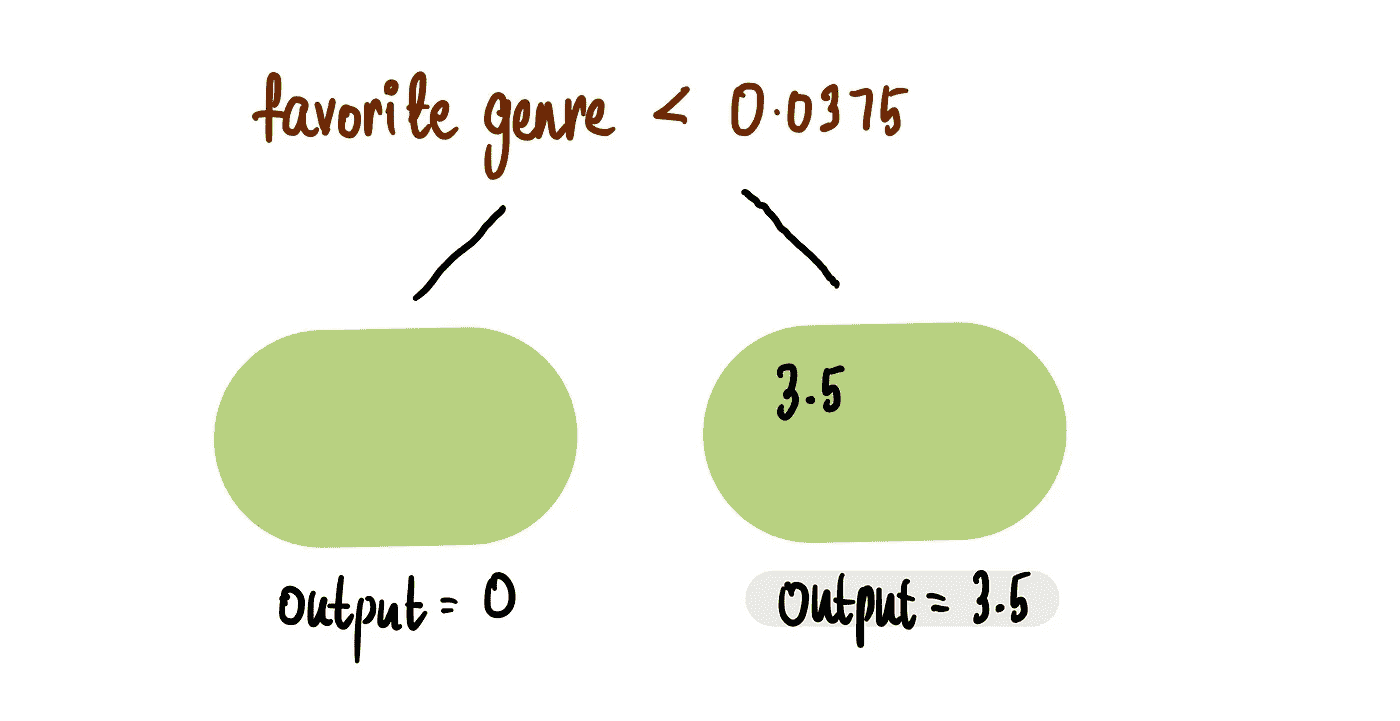 favorite genre < 0.0375
3.5
output = 0
output = 3.5